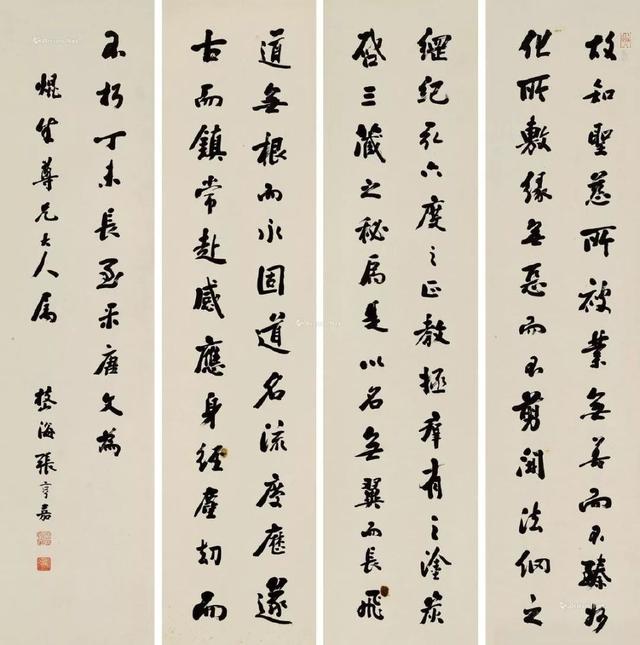 故知聖慈所被業無善而不臻妙
化所敷緣無惡而不剪開法網之
綱紀弘六度之正教拯羣有之塗炭
啓三藏之秘扃是以名無翼而長飛
道無根而永固道名流慶歷遂
古而鎮常赴感應身經塵劫而
不朽丁未長至采唐文為
焜生尊兄大人属 海張亨嘉